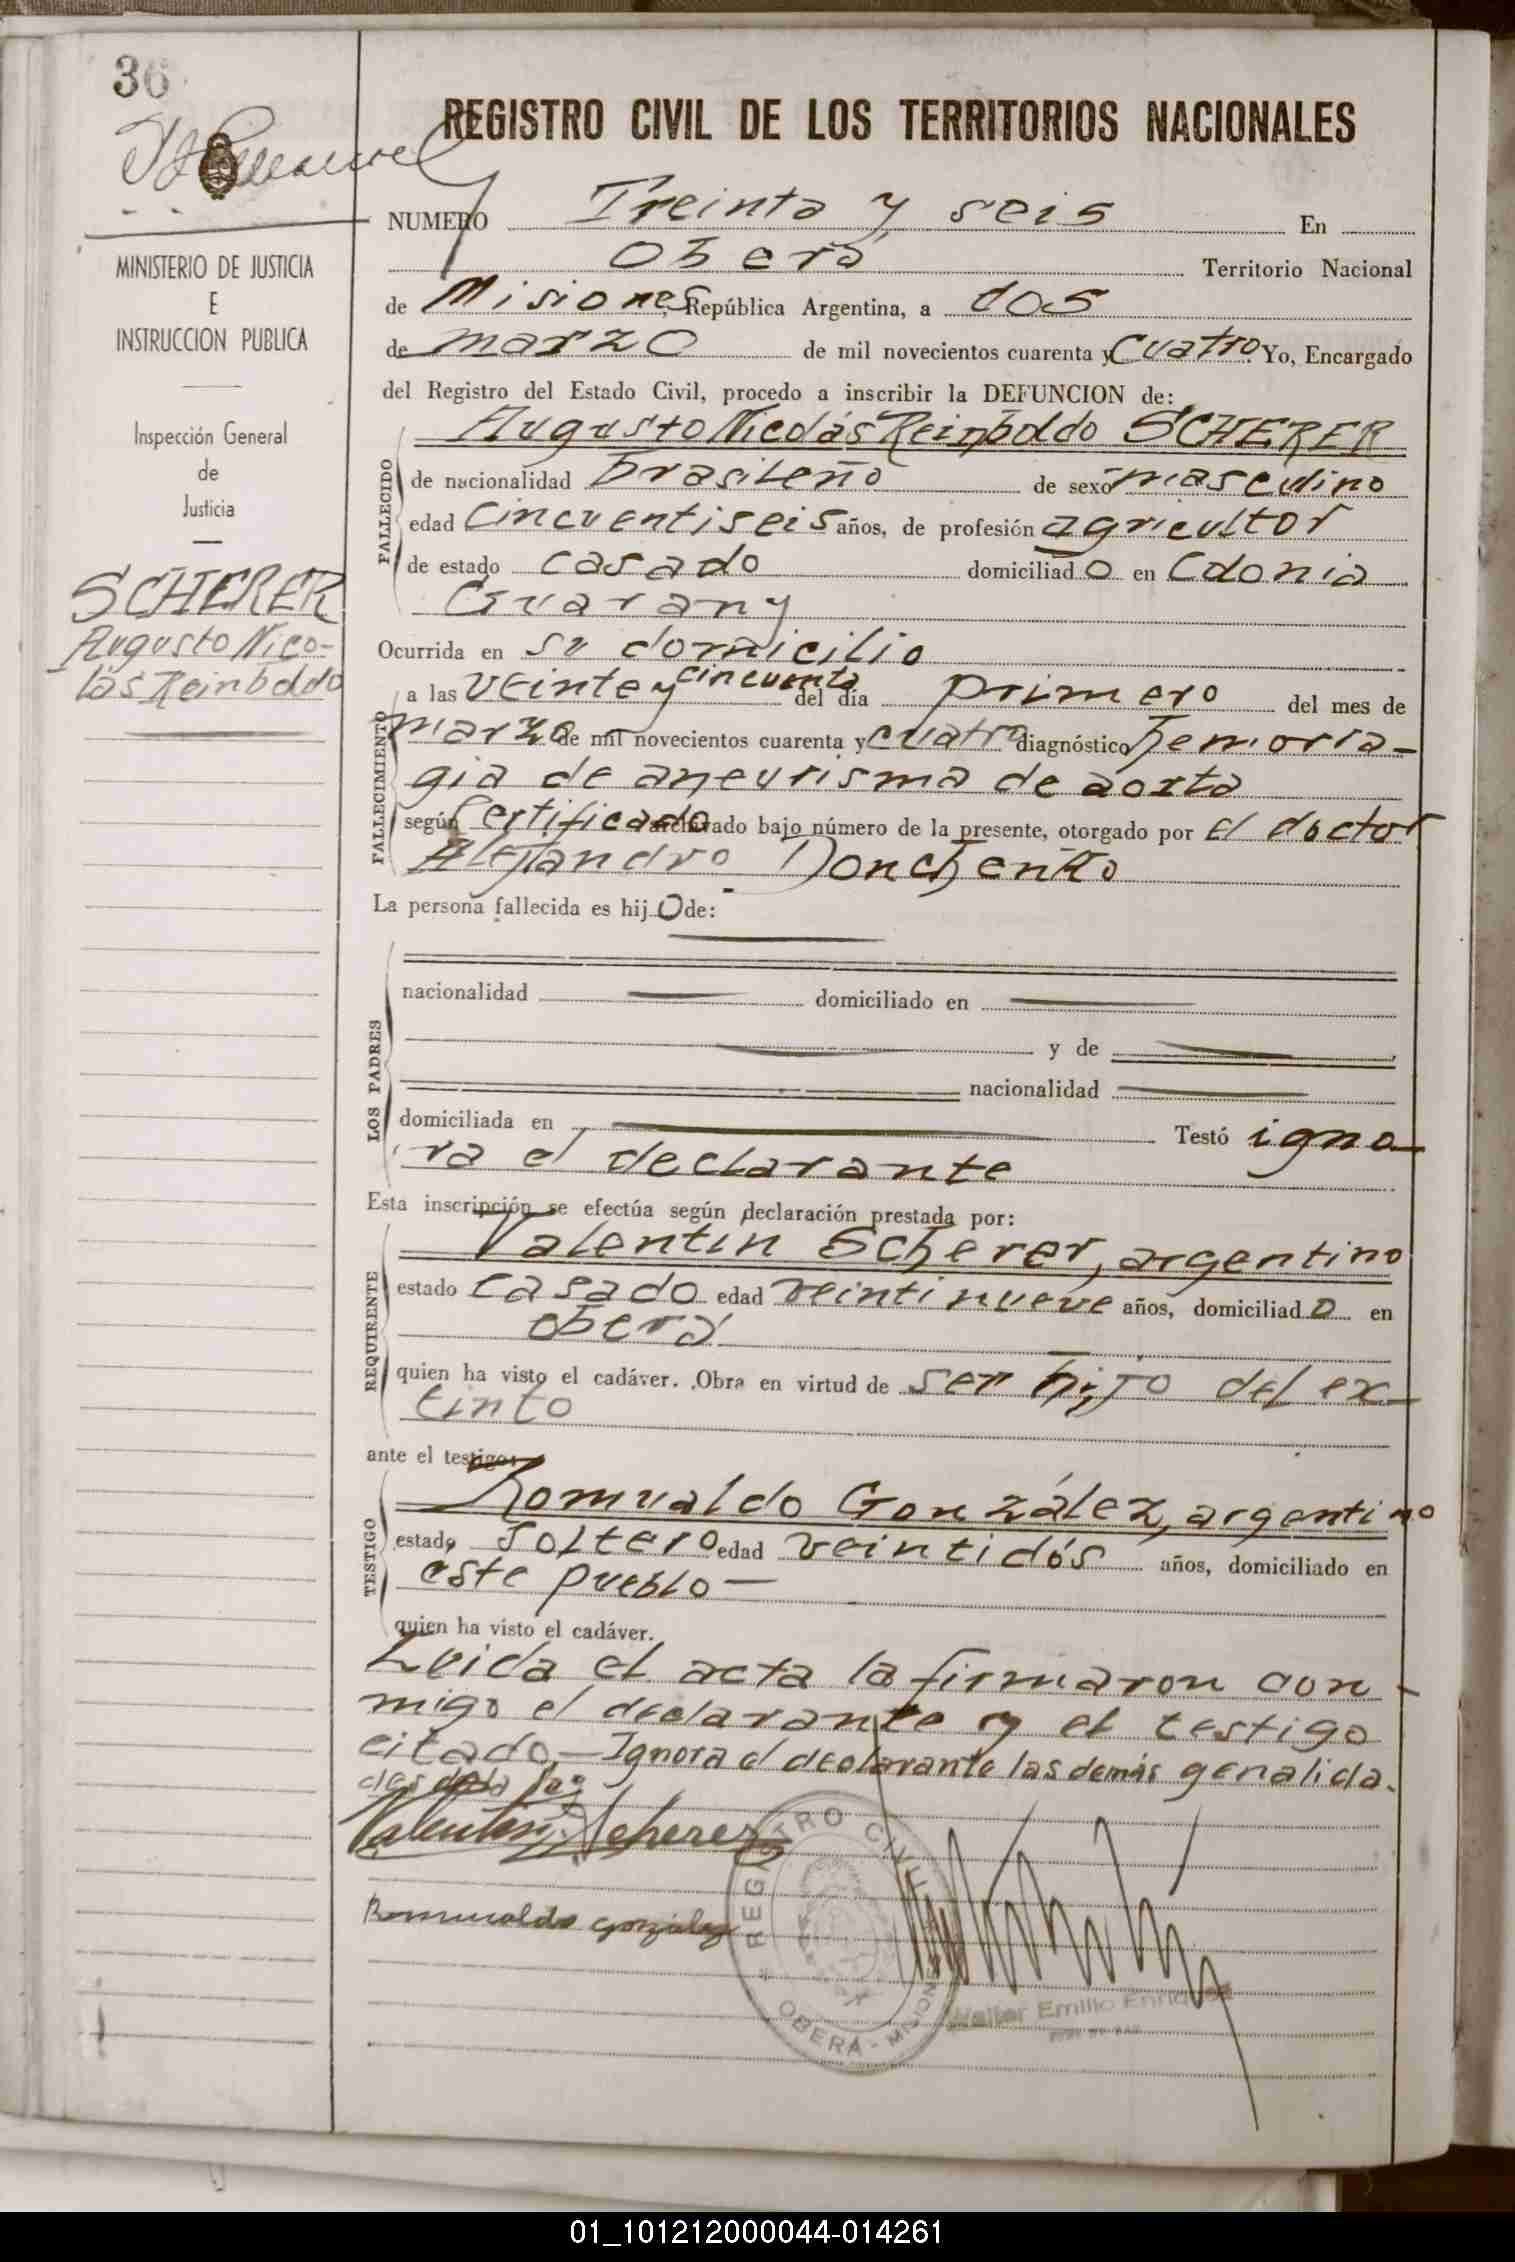 36
REGISTRO CIVIL DE LOS TERRITORIOS NACIONALES
NUMERO Treinta y seis En
Oberá Territorio Nacional
de Misiones República Argentina, a dos
de marzo de mil novecientos cuarenta y cuatro. Yo, Encargado
del Registro del Estado Civil, procedo a inscribir la DEFUNCION de:
Augusto Nicolás Reinboldo SCHERER
de nacionalidad brasileño de sexo masculino
edad cincuentiseis años, de profesión agricultor
de estado casado domiciliado en Colonia
Guarany
FALLECIDO
Ocurrida en su domicilio
a las veinte y cincuenta del día primero del mes de
marzo de mil novecientos cuarenta y cuatro diagnóstico hemorra-
gia de aneurisma de aorta
según certificado archivado bajo número de la presente, otorgado por el doctor
Alejandro Donchenko
FALLECIMIENTO
La persona fallecida es hijo de:
nacionalidad domiciliado en
y de
nacionalidad
domiciliada en Testó igno-
ra el declarante
LOS PADRES
Esta inscripción se efectúa según declaración prestada por:
Valentín Scherer, argentino
estado casado edad veintinueve años, domiciliado en
Oberá
quien ha visto el cadáver. Obra en virtud de ser hijo del ex-
tinto
REQUIRENTE
ante el testigo:
Romualdo González, argentino
estado soltero edad veintidós años, domiciliado en
este pueblo —
quien ha visto el cadáver.
TESTIGO
Leida el acta la firmaron con-
migo el declarante y el testigo
citado.— Ignora el declarante las demás genalida-
des de la ley
Valentin Scherer
Romualdo González
REGISTRO CIVIL
OBERÁ - MISIONES
Walter Emilio Enriquez
MINISTERIO DE JUSTICIA
E
INSTRUCCION PUBLICA
Inspección General
de
Justicia
SCHERER
Augusto Nico-
lás Reinboldo
01_101212000044-014261